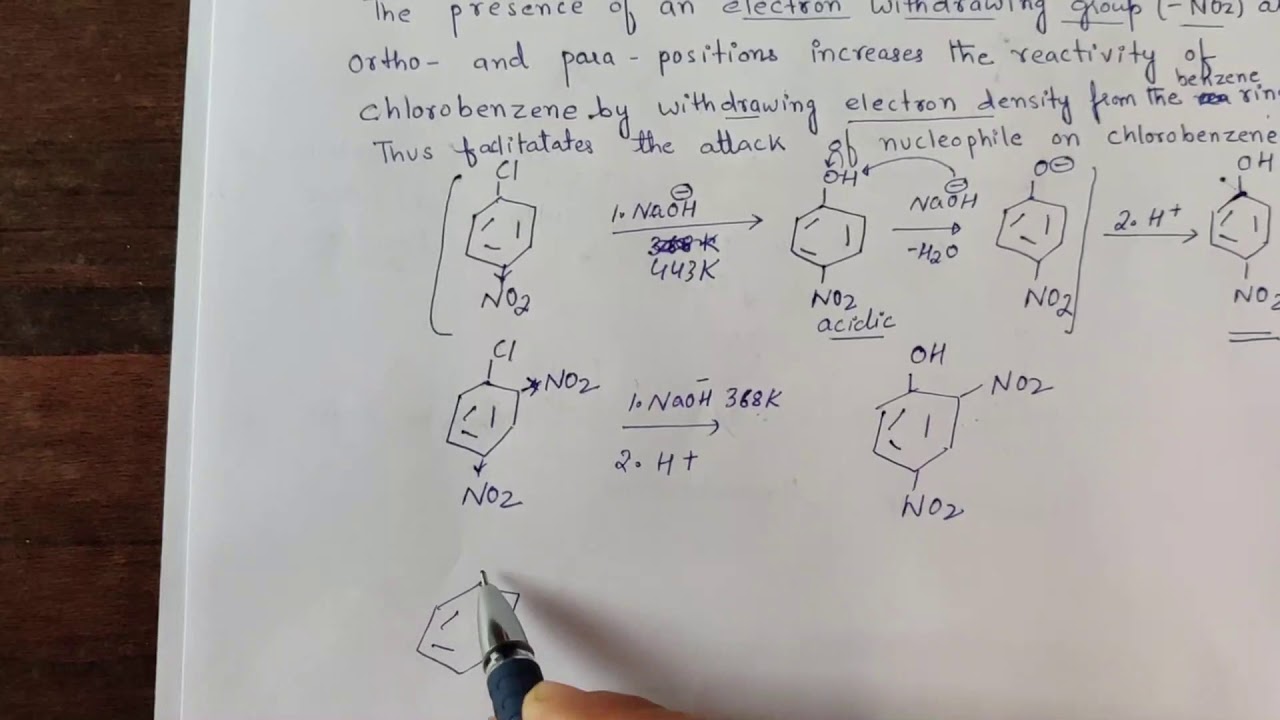 The presence of an electron withdrawing group (-NO2) a
ortho- and para- positions increases the reactivity of
benzene
chlorobenzene by withdrawing electron density from the ring
Thus faclitatates the attack of nucleophile on chlorobenzene
Cl
OH
O⊖
OH
1. NaOH⊖
NaOH⊖
2. H+
443K
-H2O
NO2
NO2
NO2
NO2
acidic
Cl
OH
NO2
NO2
1. NaOH⁻ 368K
2. H+
NO2
NO2